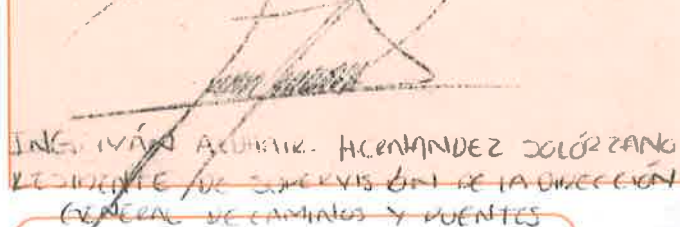 ING. IVÁN HERNANDEZ SOLÓRZANO
RESIDENTE DE SUPERVISIÓN DE LA DIRECCIÓN
GENERAL DE CAMINOS Y PUENTES